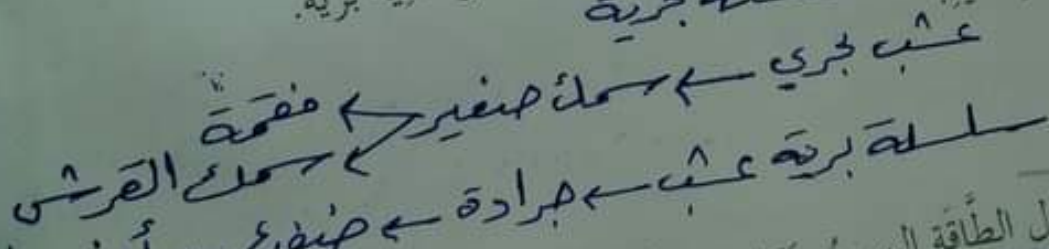 برية.
بحرية
عشب بحري ← سمك صغير ← فقمة
← سمك القرش
سلسلة برية عشب ← جرادة ← ضفدع ←
ل الطَّاقة